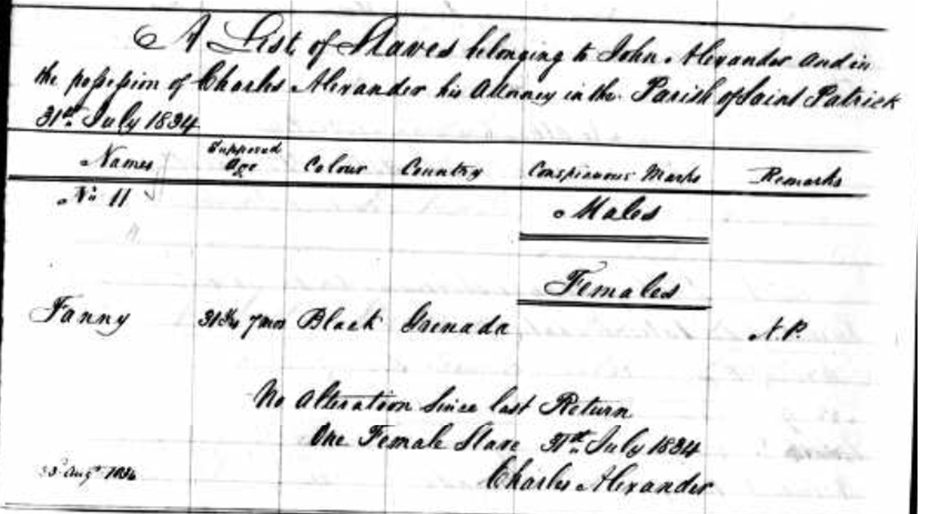 A List of Slaves belonging to John Alexander and in
the possession of Charles Alexander his Attorney in the Parish of Saint Patrick
31st July 1834
Names Supposed Age Colour Country Conspicuous Marks Remarks
No 11 Males
Females
Fanny 7 mos Black Grenada N.P.
No Alteration Since last Return
One Female Slave 31st July 1834
Charles Alexander
Augt 1834